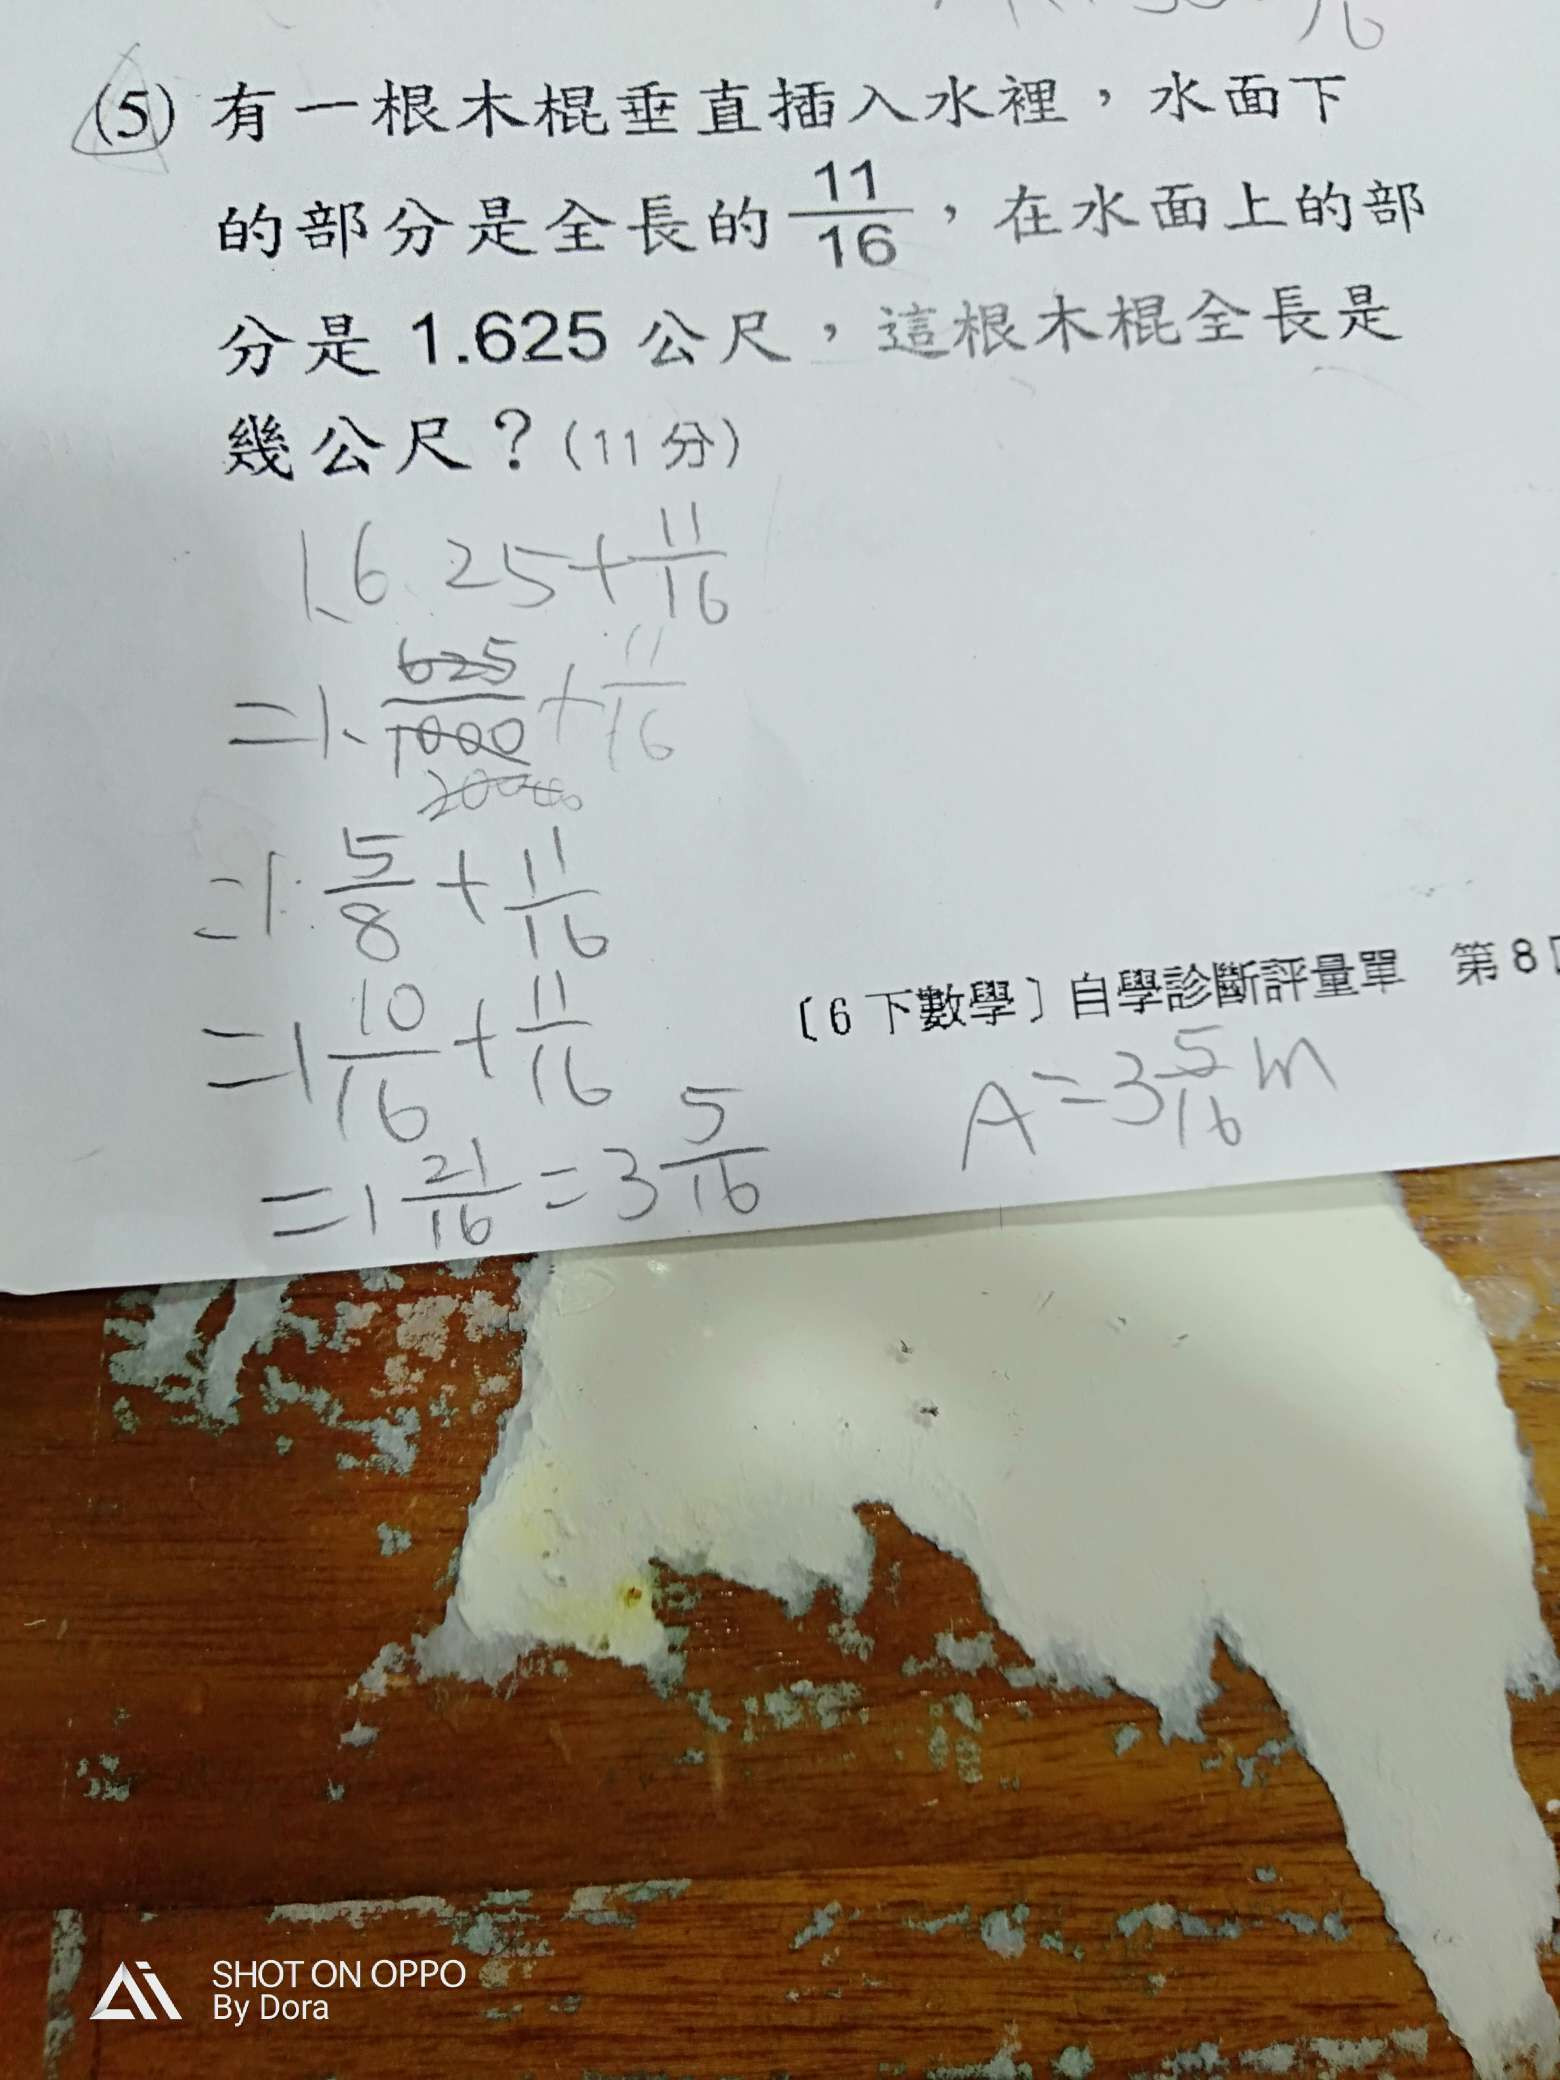 (5) 有一根木棍垂直插入水裡，水面下
的部分是全長的 11/16，在水面上的部
分是 1.625 公尺，這根木棍全長是
幾公尺？(11 分)
1.625+11/16
=1. 625/1000+11/16
=1 5/8+11/16
=1 10/16+11/16
=1 21/16=3 5/16
〔6 下數學〕自學診斷評量單 第 8
A=3 5/16 m
SHOT ON OPPO
By Dora